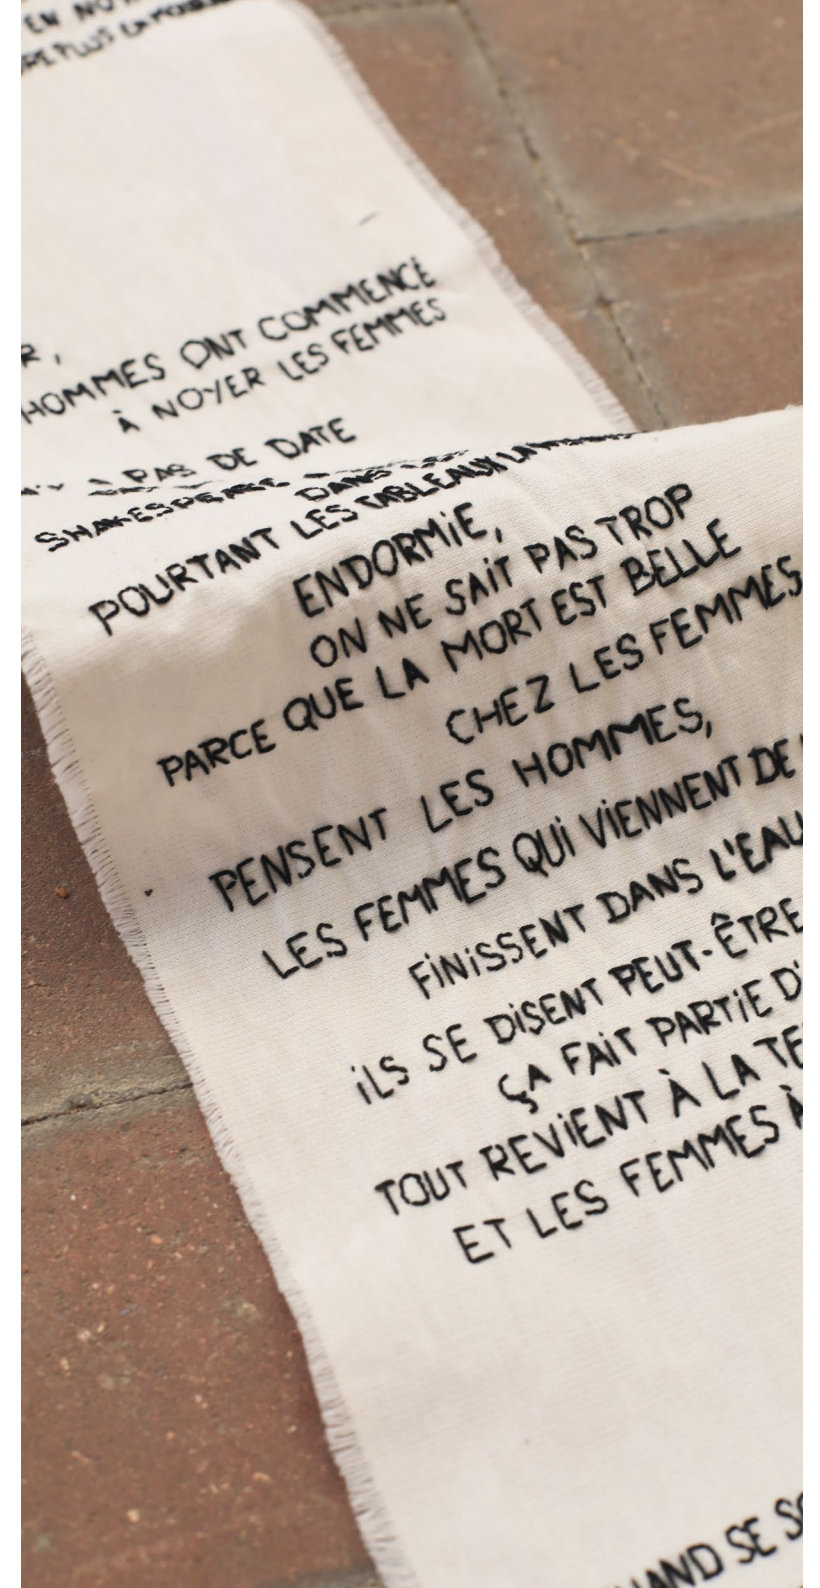 EN NO
PLUS
R,
HOMMES ONT COMMENCÉ
À NOYER LES FEMMES
PAS DE DATE
SHAKESPEARE DANS
POURTANT LES TABLEAUX LA
ENDORMIE,
ON NE SAIT PAS TROP
PARCE QUE LA MORT EST BELLE
CHEZ LES FEMMES
PENSENT LES HOMMES,
LES FEMMES QUI VIENNENT DE
FINISSENT DANS L'EAU
ILS SE DISENT PEUT-ÊTRE
ÇA FAIT PARTIE D'
TOUT REVIENT À LA TE
ET LES FEMMES À
AND SE SO